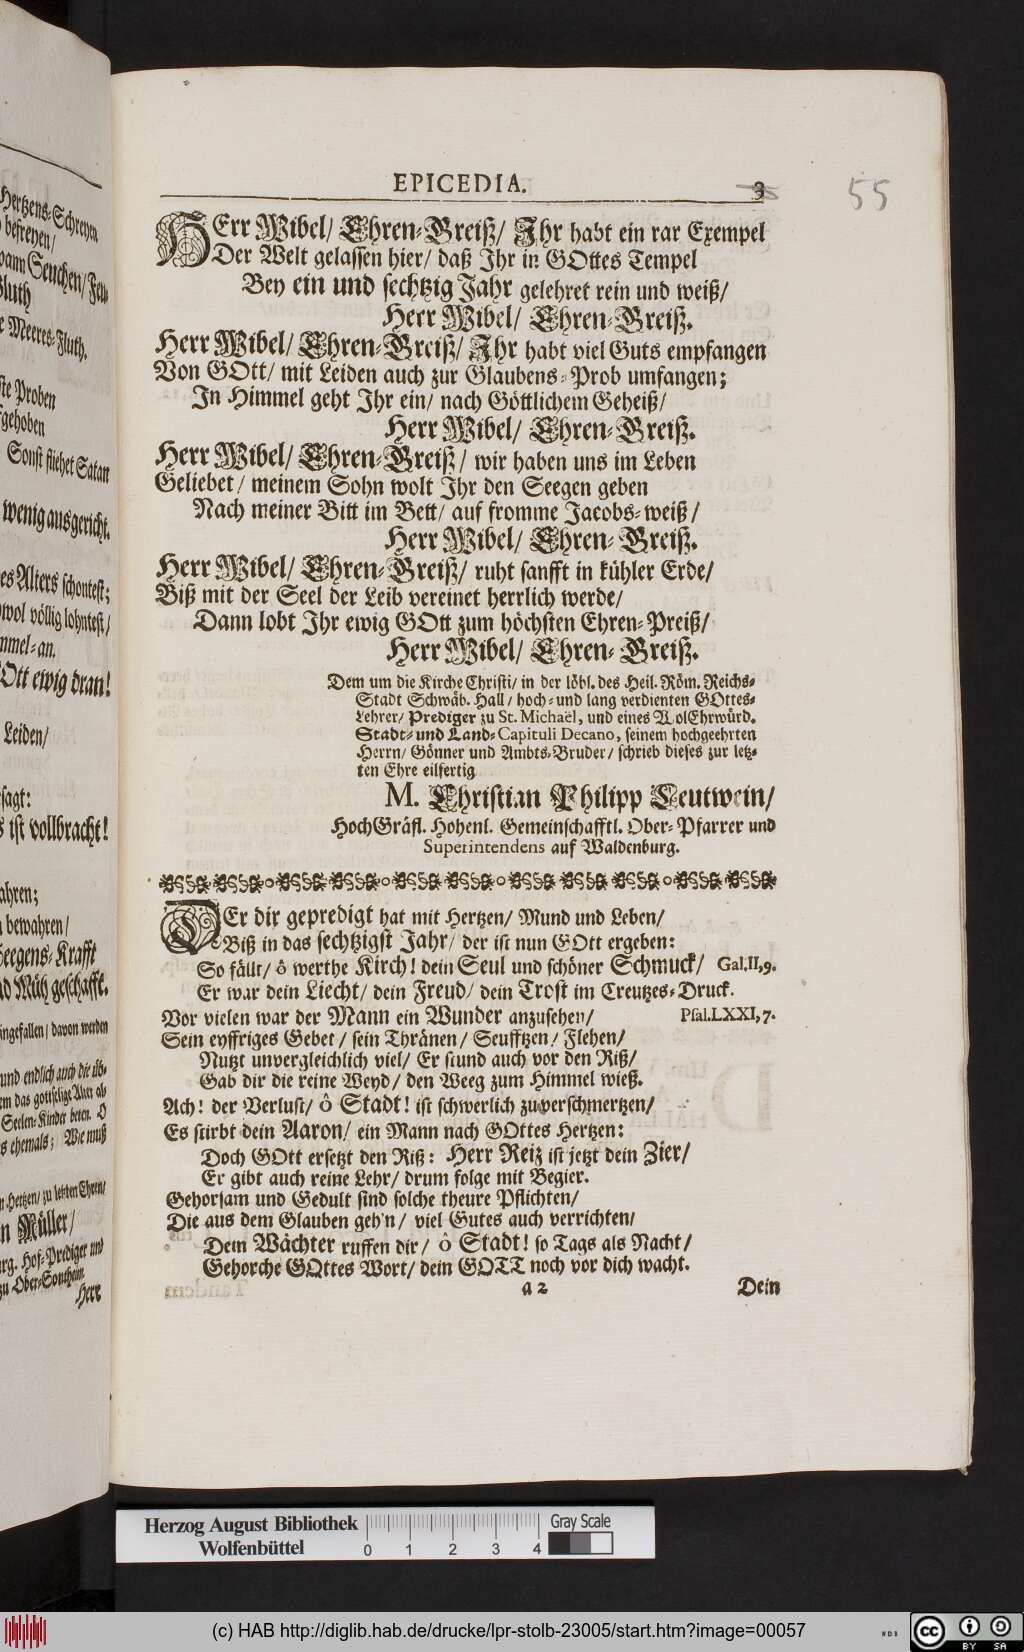 Hertzens-Schreyen
befreyen/
Seuchen/
Gluth
Meeres-Fluth.
Proben
gehoben
Sonst fliehet Satan
wenig ausgericht.
Alters schontest;
wol völlig lohntest/
mmel-an.
Ott ewig dran!
Leiden/
sagt:
ist vollbracht!
ahren;
bewahren/
Seegens-Krafft
Müh geschafft.
eingefallen/ davon werden
und endlich auch die üb-
em das gottselige Alter als
Seelen-Kinder beten. O
ehemals; Wie muß
Hertzen/ zu letzten Ehren/
Müller/
Hof-Prediger und
zu Ober-Sontheim.
Herr
EPICEDIA. 3
55
HErr Wibel/ Ehren-Greiß/ Ihr habt ein rar Exempel
Der Welt gelassen hier/ daß Ihr in GOttes Tempel
Bey ein und sechtzig Jahr gelehret rein und weiß/
Herr Wibel/ Ehren-Greiß.
Herr Wibel/ Ehren-Greiß/ Ihr habt viel Guts empfangen
Von GOtt/ mit Leiden auch zur Glaubens-Prob umfangen;
In Himmel geht Ihr ein/ nach Göttlichem Geheiß/
Herr Wibel/ Ehren-Greiß.
Herr Wibel/ Ehren-Greiß/ wir haben uns im Leben
Geliebet/ meinem Sohn wolt Ihr den Seegen geben
Nach meiner Bitt im Bett/ auf fromme Jacobs-weiß/
Herr Wibel/ Ehren-Greiß.
Herr Wibel/ Ehren-Greiß/ ruht sanfft in kühler Erde/
Biß mit der Seel der Leib vereinet herrlich werde/
Dann lobt Ihr ewig GOtt zum höchsten Ehren-Preiß/
Herr Wibel/ Ehren-Greiß.
Dem um die Kirche Christi/ in der löbl. des Heil. Röm. Reichs-
Stadt Schwäb. Hall/ hoch-und lang verdienten GOttes-
Lehrer/ Prediger zu St. Michaël, und eines WolEhrwürd.
Stadt-und Land-Capituli Decano, seinem hochgeehrten
Herrn/ Gönner und Ambts-Bruder/ schrieb dieses zur letz-
ten Ehre eilfertig
M. Christian Philipp Leutwein/
HochGräfl. Hohenl. Gemeinschafftl. Ober-Pfarrer und
Superintendens auf Waldenburg.
DEr dir gepredigt hat mit Hertzen/ Mund und Leben/
Biß in das sechtzigst Jahr/ der ist nun GOtt ergeben:
So fällt/ ô werthe Kirch! dein Seul und schöner Schmuck/ Gal.II,9.
Er war dein Liecht/ dein Freud/ dein Trost im Creutzes-Druck.
Vor vielen war der Mann ein Wunder anzusehen/ Psal.LXXI,7.
Sein eyffriges Gebet/ sein Thränen/ Seufftzen/ Flehen/
Nutzt unvergleichlich viel/ Er stund auch vor den Riß/
Gab dir die reine Weyd/ den Weeg zum Himmel wieß.
Ach! der Verlust/ ô Stadt! ist schwerlich zuverschmertzen/
Es stirbt dein Aaron/ ein Mann nach GOttes Hertzen:
Doch GOtt ersetzt den Riß: Herr Reiz ist jetzt dein Zier/
Er gibt auch reine Lehr/ drum folge mit Begier.
Gehorsam und Gedult sind solche theure Pflichten/
Die aus dem Glauben geh'n/ viel Gutes auch verrichten/
Dein Wächter ruffen dir/ ô Stadt! so Tags als Nacht/
Gehorche GOttes Wort/ dein GOTT noch vor dich wacht.
a 2 Dein
Herzog August Bibliothek
Wolfenbüttel
0 1 2 3 4
Gray Scale
(c) HAB http://diglib.hab.de/drucke/lpr-stolb-23005/start.htm?image=00057
WDB
cc BY SA